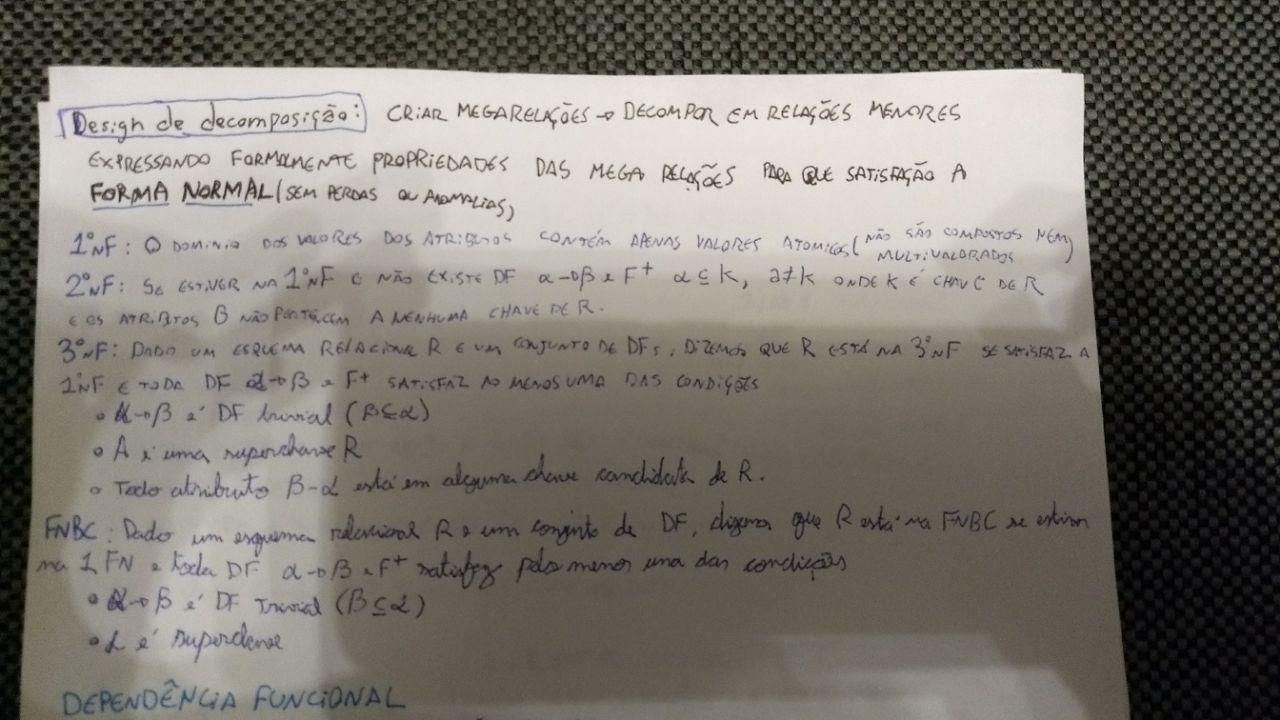 Design de decomposição: CRIAR MEGARELAÇÕES → DECOMPOR EM RELAÇÕES MENORES
EXPRESSANDO FORMALMENTE PROPRIEDADES DAS MEGA RELAÇÕES PARA QUE SATISFAÇÃO A
FORMA NORMAL (SEM PERDAS OU ANOMALIAS)
1ºNF: O DOMINIO DOS VALORES DOS ATRIBUTOS CONTÉM APENAS VALORES ATOMICOS (NÃO SÃO COMPOSTOS NEM
MULTIVALORADOS)
2ºNF: SE ESTIVER NA 1ºNF E NÃO EXISTE DF α→β e F⁺ α⊆K, α≠K ONDE K É CHAVE DE R
E OS ATRIBTOS β NÃO PERTENCEM A NENHUMA CHAVE DE R.
3ºNF: DADO UM ESQUEMA RELACIONAL R E UM CONJUNTO DE DFs, DIZEMOS QUE R ESTÁ NA 3ºNF SE SATISFAZ A
1ºNF E TODA DF α→β e F⁺ SATISFAZ AO MENOS UMA DAS CONDIÇÕES
• α→β é DF trivial (β⊆α)
• A é uma superchave R
• Todo atributo β-α está em alguma chave candidata de R.
FNBC: Dado um esquema relacional R e um conjunto de DF, dizemos que R está na FNBC se estiver
na 1FN e toda DF α→β e F⁺ satisfaz pelo menos uma das condições
• α→β é DF Trivial (β⊆α)
• α é superchave
DEPENDÊNCIA FUNCIONAL